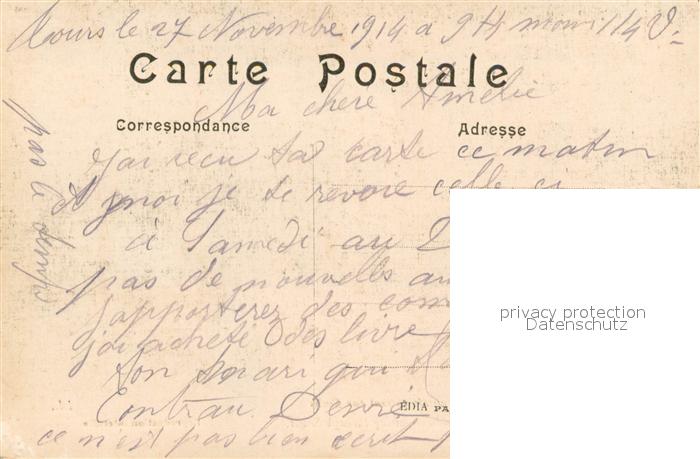 Tours le 27 Novembre 1914 a 9 H moin 1/4
Carte Postale
Ma chere Amelie
Correspondance
Adresse
J'ai recu ta carte ce matin
Et moi je te revoie celle ci
a Samedi au
pas de nouvelles au
japporterez des com
jai acheté des livre
ton mari qui
ÉDIA PA
ce n'est pas bien ecrit
pas le temps
privacy protection
Datenschutz